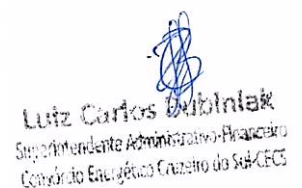 Luiz Carlos Bubiniak
Superintendente Administrativo-Financeiro
Consórcio Energético Cruzeiro do Sul-CECS